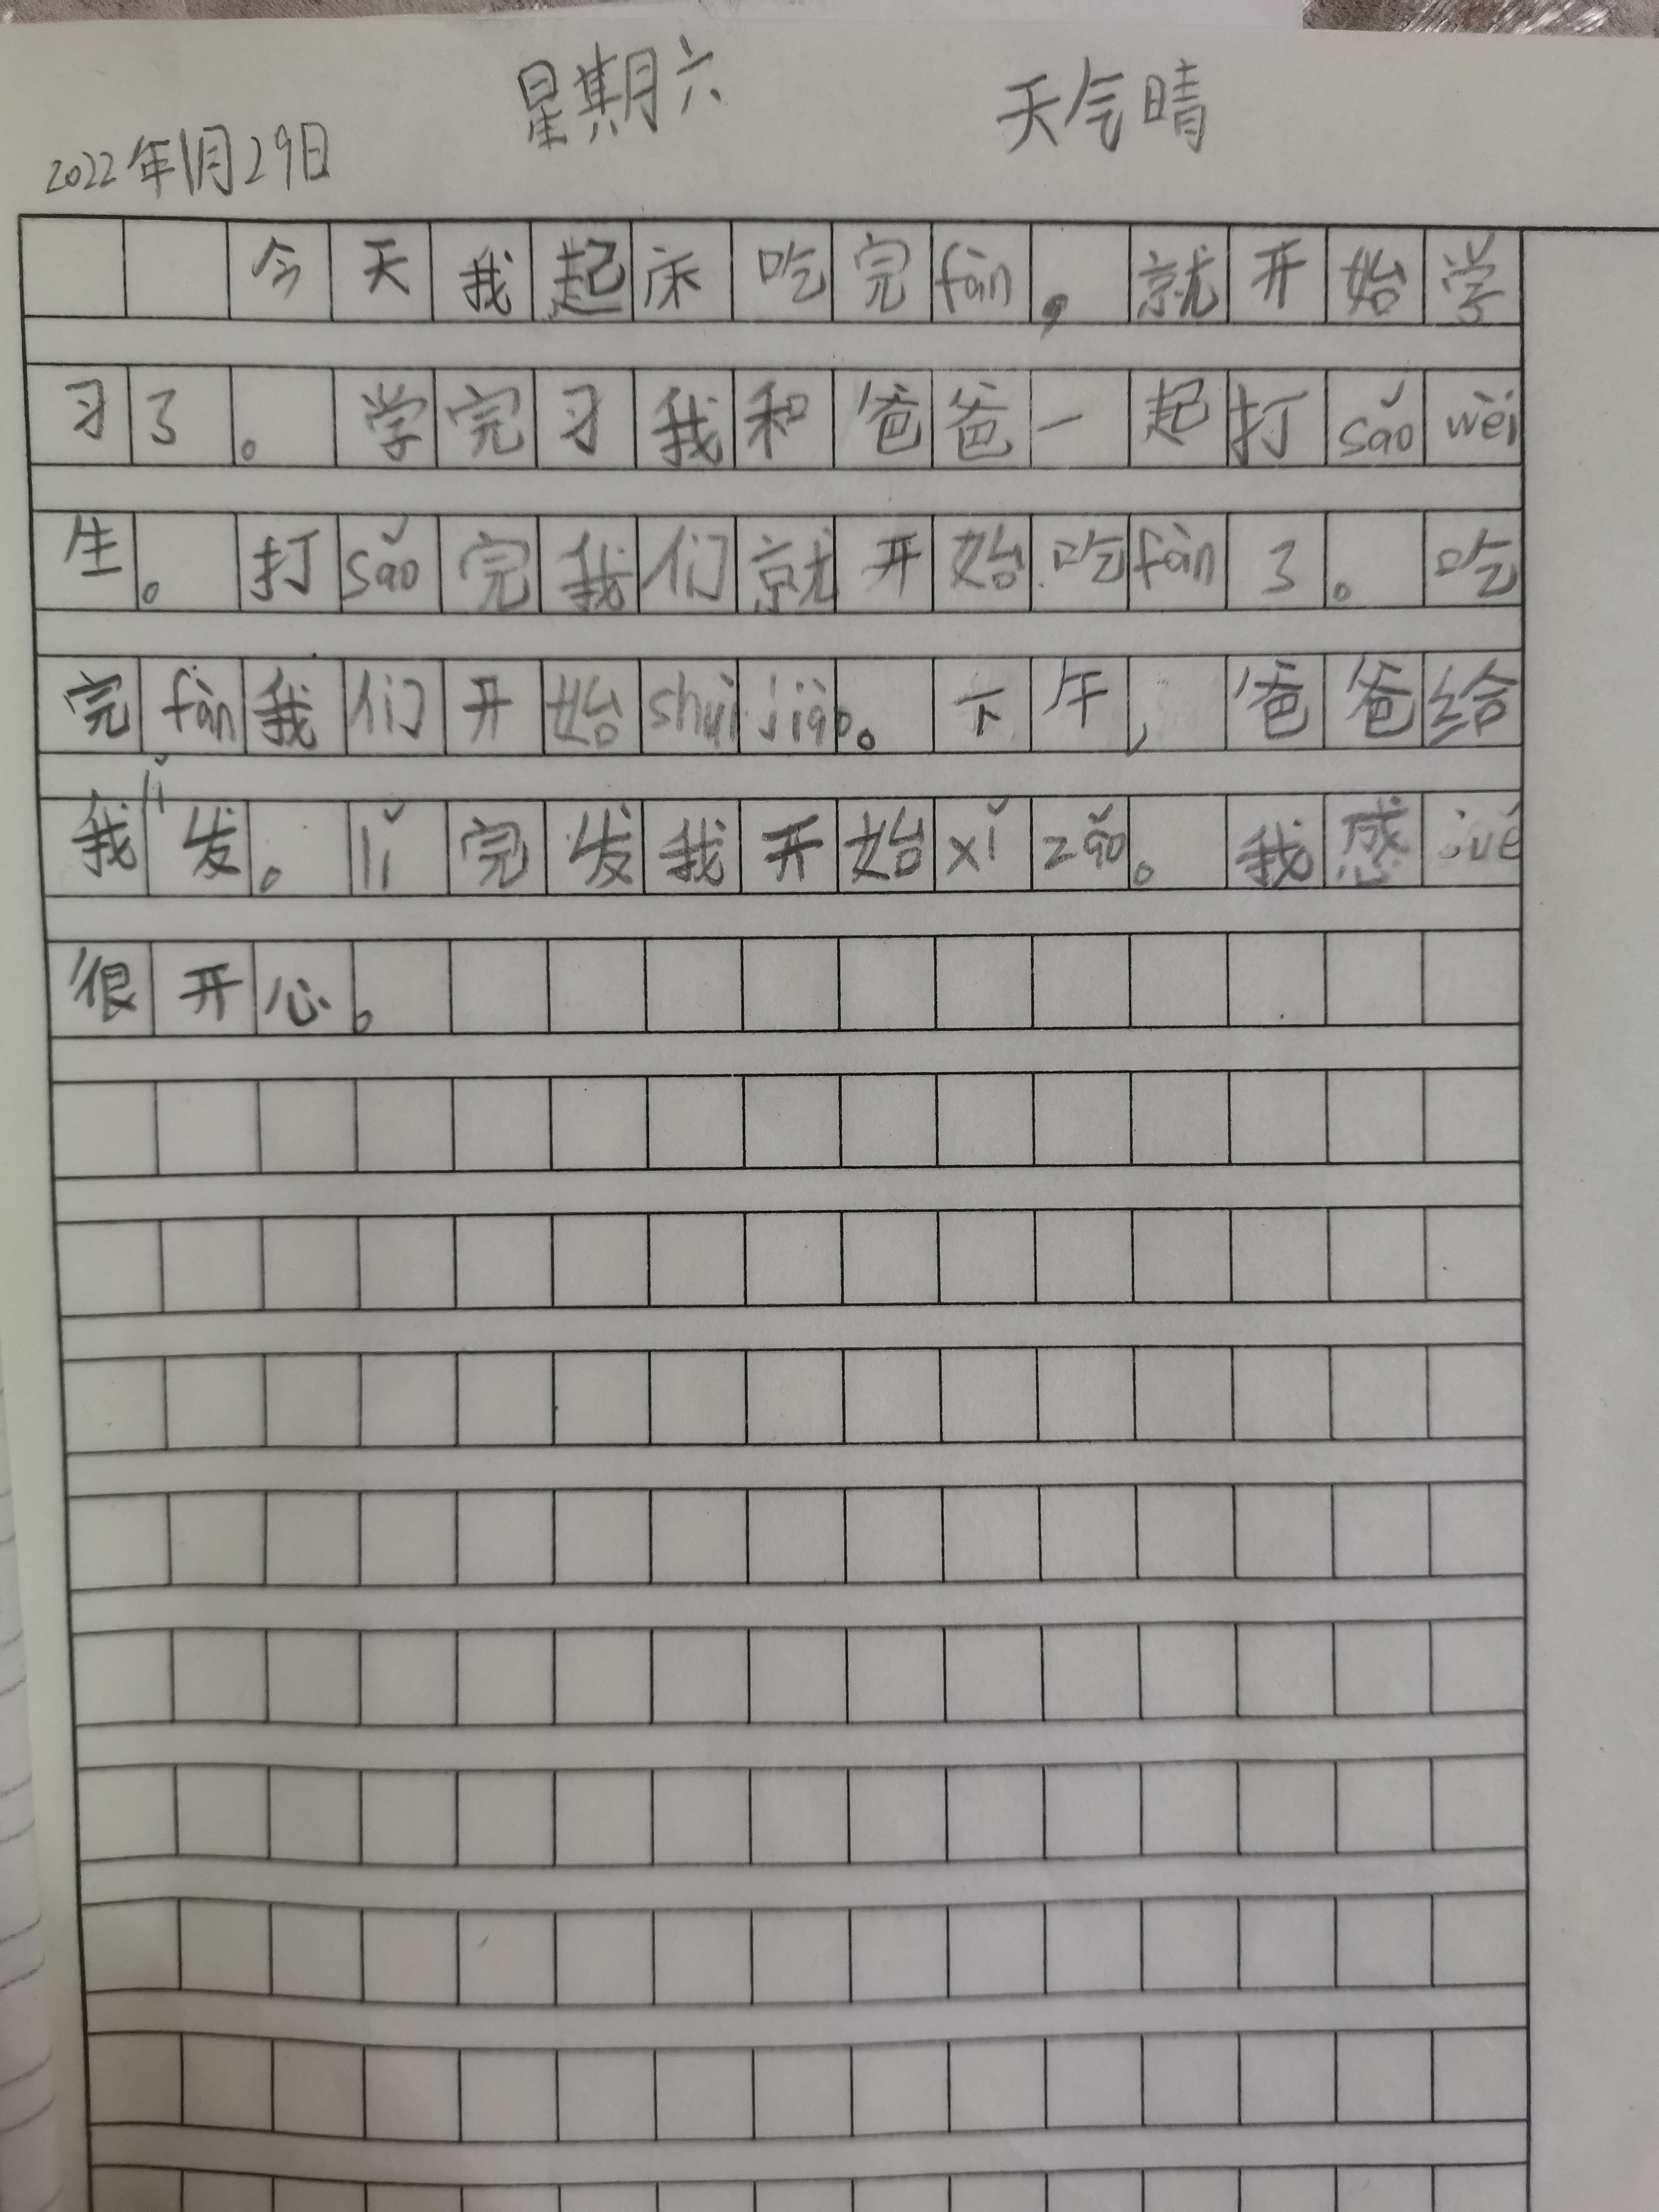 星期六 天气晴
2022年1月29日
今天我起床吃完fàn，就开始学
习了。学完习我和爸爸一起打sǎo wèi
生。打sǎo完我们就开始吃fàn了。吃
完fàn我们开始shuì jiào。下午，爸爸给
我lǐ发。lǐ完发我开始xǐ zǎo。我感jué
很开心。